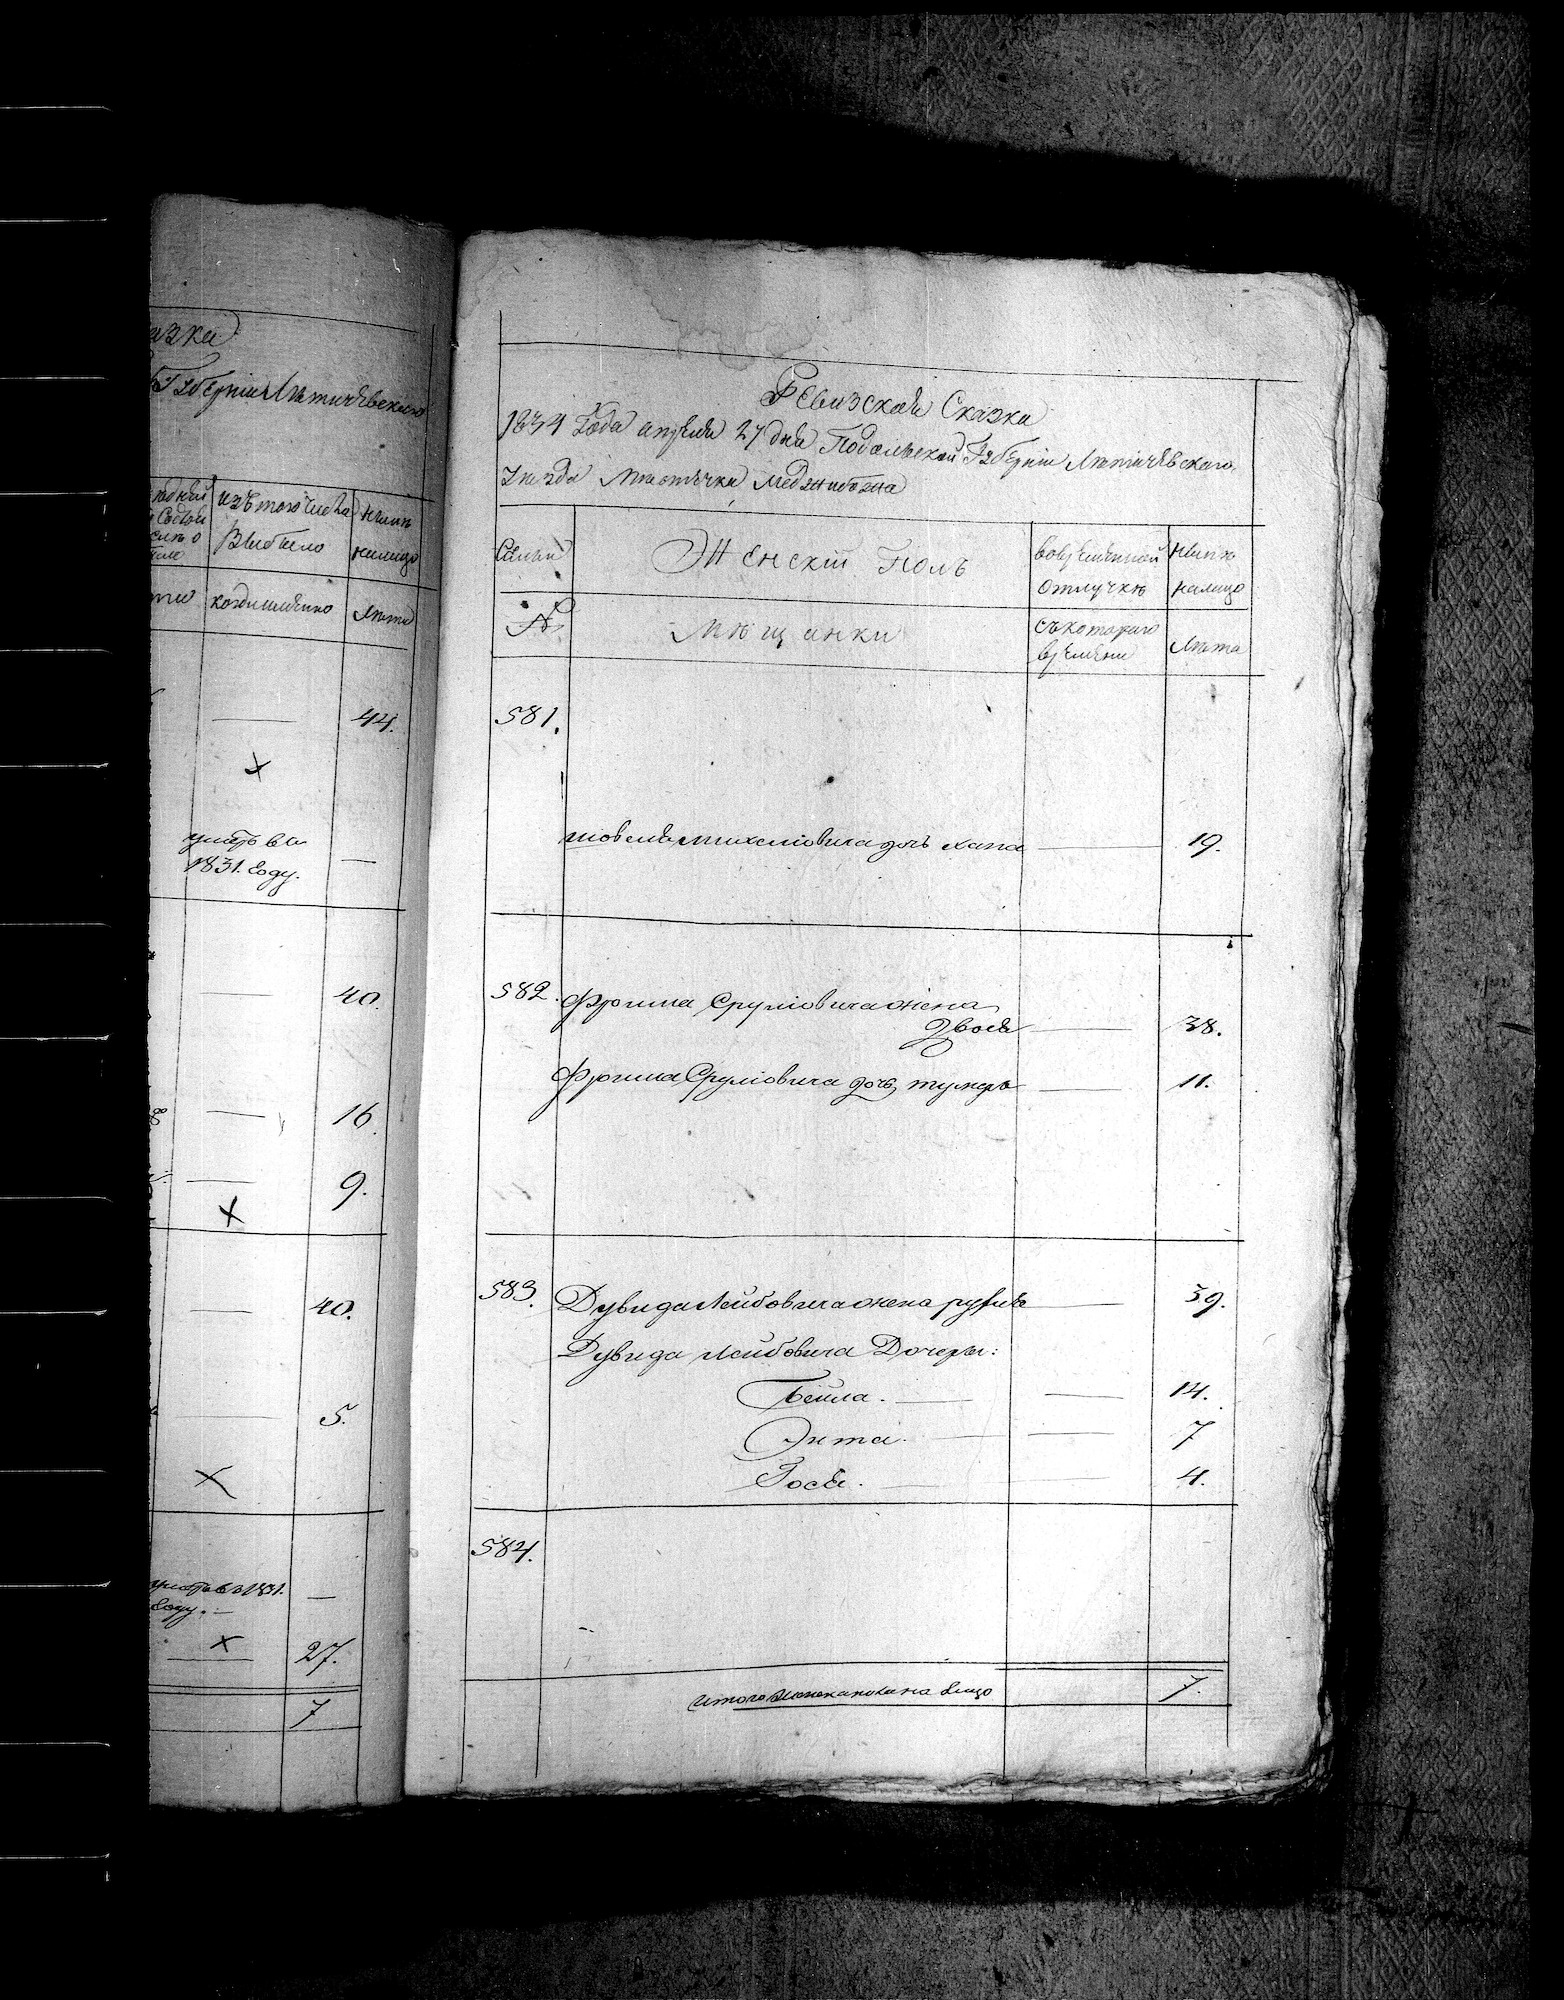 азка
Губерніи Летичевскаго
изъ того числа
Выбыло
ныне
налицо
когда именно
Лета
44.
умеръ въ
1831. году.
40.
16.
9.
40.
5.
умеръ въ 1831.
году.
27.
7
Ревизская Сказка
1834 Года апреля 27 дня Подольской Губерніи Летичевскаго
уезда Местечка Меджибожа
Семьи
Женскій Полъ
вовременной
отлучке
Ныне
налицо
№
Мещанки
съкотораго
времени
Лета
581.
Шовеля Михелиовича дочь Хана 19.
582. Фроима Срулiовича жена
Двося 38.
Фроима Срулiовича дочь 11.
583. Дувида Лейбовича жена 39.
Дувида Лейбовича Дочери:
Бейла. 14.
Энта. 7
Рося. 4.
584.
Итого женска пола на лицо 7.